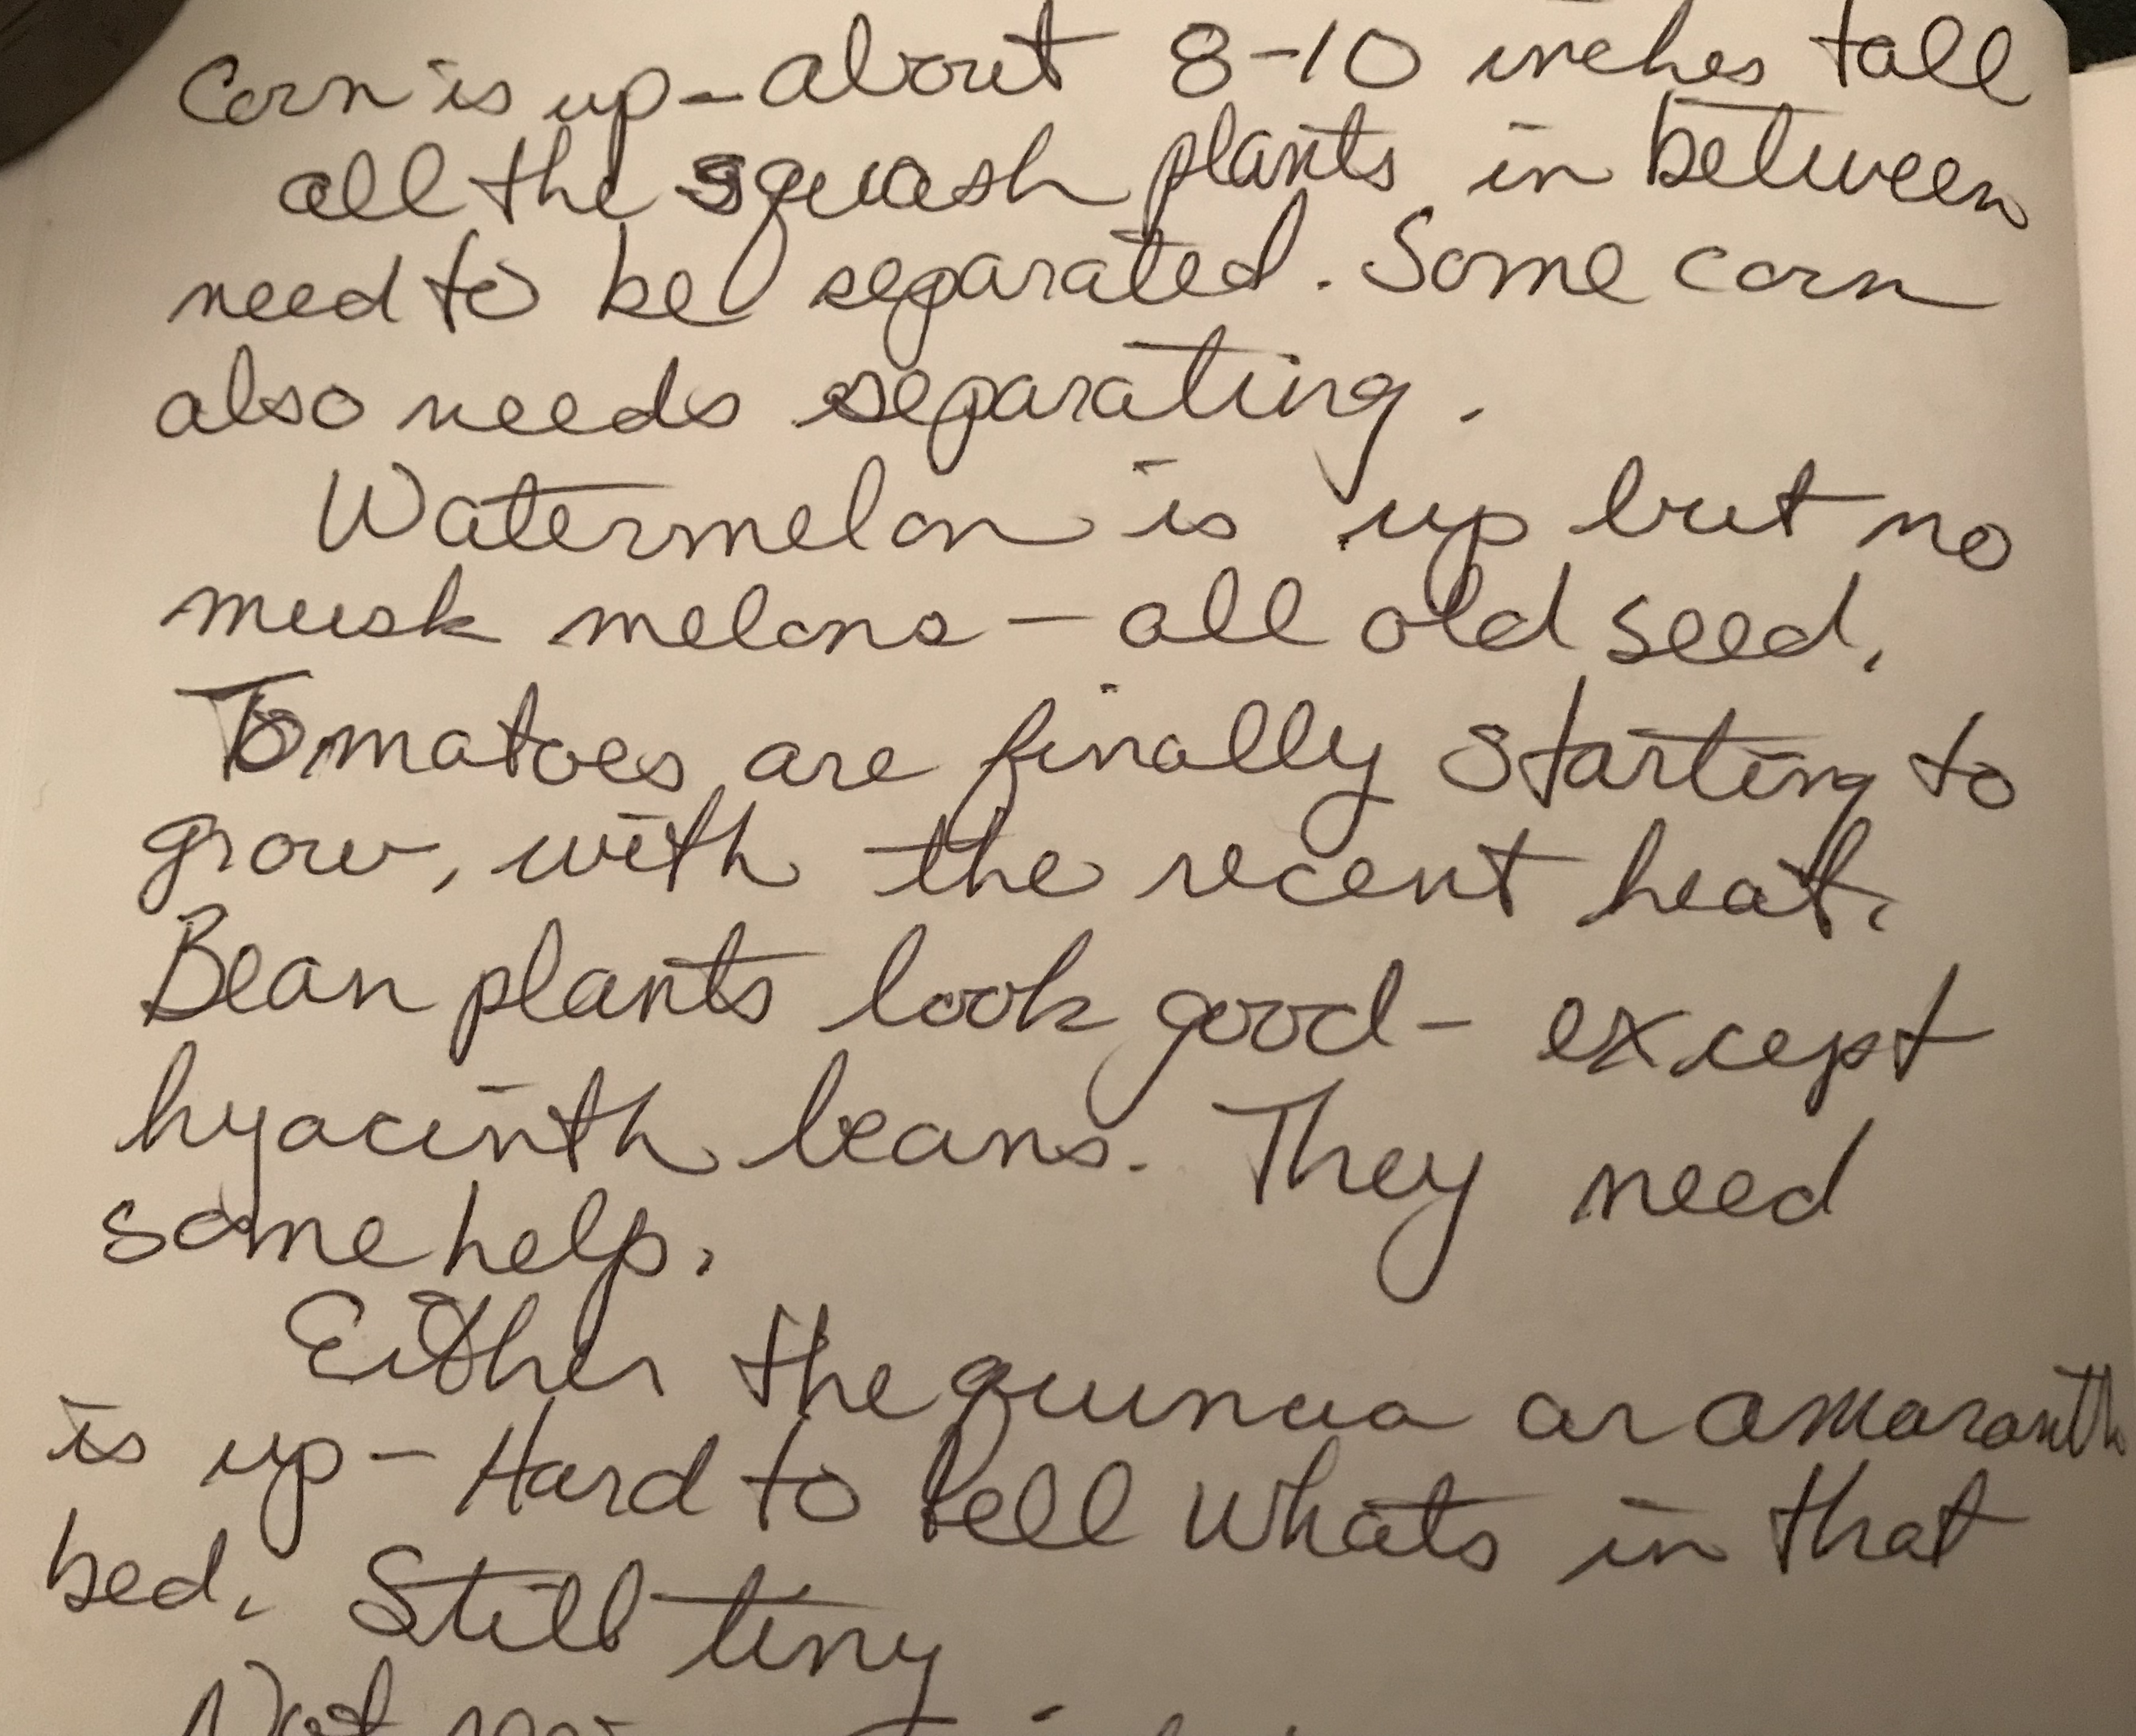 Corn is up - about 8-10 inches tall
all the squash plants in between
need to be separated. Some corn
also needs separating.
Watermelon is up but no
musk melons - all old seed.
Tomatoes are finally starting to
grow, with the recent heat.
Bean plants look good - except
hyacinth beans. They need
some help.
Either the quinua or amaranth
is up - Hard to tell whats in that
bed. Still tiny
Not